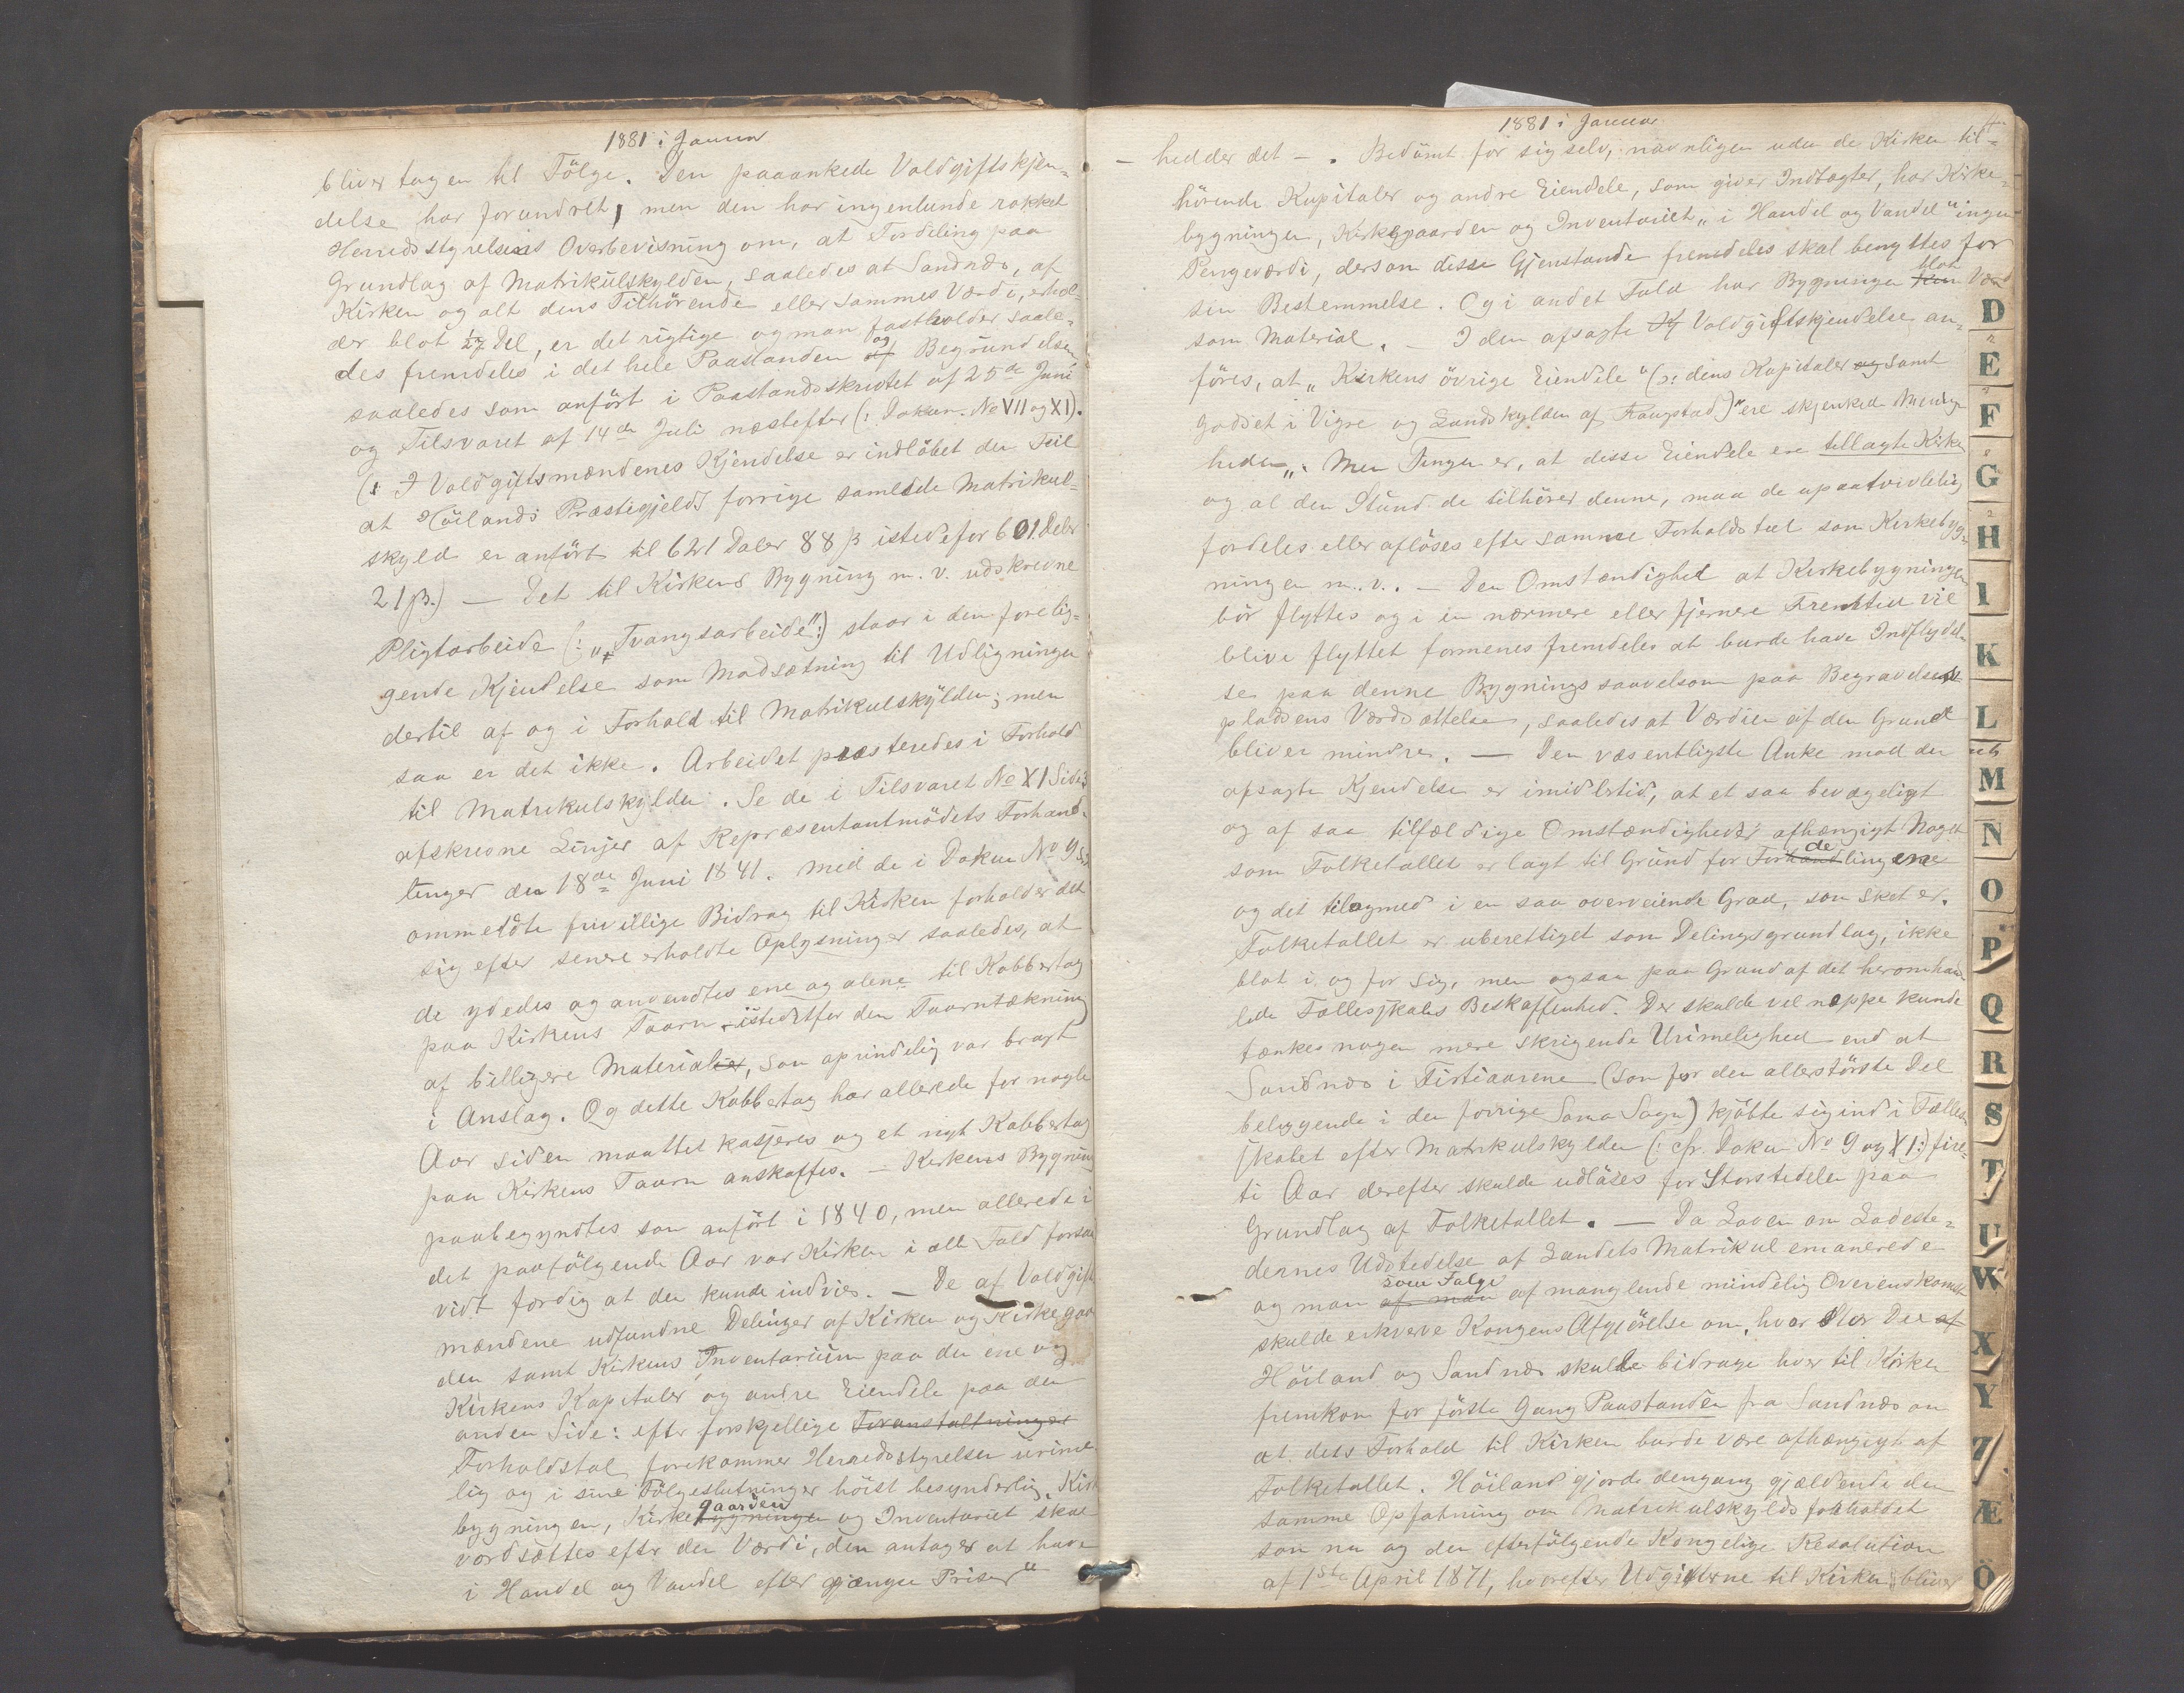 1881 i Januar
bliver tagen til Følge. Den paaankede Voldgiftskjen-
delse har forundret, men den har ingenlunde rokket
Herredsstyrelsens Overbevisning om, at Fordeling paa
Grundlag af Matrikulskylden, saaledes at Sandnæs, af
Kirken og alt dens Tilhörende eller sammes Værdi, erhol-
der blot 1/27 Del, er det rigtige og man fastholder saale-
des fremdeles i det hele Paastanden og Begrundelsen
saaledes som anfört i Paastandsskriftet af 25de Juni
og Tilsvaret af 14de Juli næstefter (: Dokum. No VII og XI).
(: I Voldgiftsmændenes Kjendelse er indlöbet den Feil
at Höilands Præstegjelds forrige samlede Matrikul-
skyld er anfört til 621 Daler 88 β istedefor 601 Daler
21 β.) — Det til Kirkens Bygning m. v. udskrevne
Pligtarbeide (: "Tvangsarbeide":) staar i den forelig-
gende Kjendelse som Modsætning til Udligningen
dertil af og i Forhold til Matrikulskylden; men
saa er det ikke. Arbeidet præsteredes i Forhold
til Matrikulskylden. Se de i Tilsvaret No XI Side 3
afskrevne Linjer af Repræsentantmödets Forhand-
linger den 18de Juni 1841. Med de i Dokum No 9
ommeldte frivillige Bidrag til Kirken forholder det
sig efter senere erholdte Oplysninger saaledes, at
de ydedes og anvendtes ene og alene til Kobbertag
paa Kirkens Taarn istedetfor den Taarntækning
af billigere Materialier, som oprindelig var bragt
i Anslag. Og dette Kobbertag har allerede for nogle
Aar siden maattet kasjeres og et nyt Kobbertag
paa Kirkens Taarn anskaffes. — Kirkens Bygning
paabegyndtes som anfört i 1840, men allerede i
det paafölgende Aar var Kirken i alle Fald forsaa
vidt færdig at den kunde indvies. — De af Voldgifts
mændene udfundne Delinger af Kirken og Kirkegaar
den samt Kirkens Inventarium paa den ene og
Kirkens Kapitaler og andre Eiendele paa den
anden Side: efter forskjellige Foranstaltninger
Forholdstal forekommer Herredsstyrelsen urime-
lig og i sine Følgeslutninger höist besynderlig. Kirke
bygningen, Kirkegaarden og Inventariet skal
værdsættes efter den Værdi, den antages at have
i Handel og Vandel efter gjængse Priser"
1881 i Januar
— hedder det —. Bedömt for sig selv, navnligen uden de Kirken til-
hörende Kapitaler og andre Eiendele, som giver Indtægter, har Kirke-
bygningen, Kirkegaarden og Inventariet "i Handel og Vandel" ingen
Pengeværdi, dersom disse Gjenstande fremdeles skal benyttes for
sin Bestemmelse. Og i andet Fald har Bygningen blot Værd
som Material. — I den afsagte Voldgiftskjendelse an-
föres, at "Kirkens övrige Eiendele" (: dens Kapitaler samt
Godset i Vigre og Landskylden af) "ere skjenket Menig-
heden". Men Tingen er, at disse Eiendele ere tillagte Kirken
og al den Stund de tilhörer denne, maa de upaatvivlelig
fordeles eller aflöses efter samme Forholdstal som Kirkebyg-
ningen m. v. — Den Omstændighed at Kirkebygningen
bör flyttes og i en nærmere eller fjernere Fremtid vil
blive flyttet formenes fremdeles at burde have Indflydel-
se paa denne Bygnings saavelsom paa Begravelses-
pladsens Værdsættelse, saaledes at Værdien af den Grund
bliver mindre. — Den væsentligste Anke mod den
afsagte Kjendelse er imidlertid, at et saa bevægeligt
og af saa tilfældige Omstændigheder afhængigt Noget
som Folketallet er lagt til Grund for Fordelingene
og det tilogmed i en saa overveiende Grad, som sket er.
Folketallet er uberettiget som Delingsgrundlag, ikke
blot i og for sig, men ogsaa paa Grund af det heromhand
lede Fællesskabs Beskaffenhed. Der skulde vel neppe kunde
tænkes nogen mere skrigende Urimelighed end at
Sandnæs i Firtiaarene (som for den allerstörste Del
beliggende i den forrige Soma Sogn) kjöbte sig ind i Fælles
skabet efter Matrikulskylden (: cfr. Dokum No 9 og XI:) fire-
ti Aar derefter skulde udlöses for Storstedelen paa
Grundlag af Folketallet. — Da Loven om Ladeste-
dernes Udstedelse af Landets Matrikul emanerede
og man som Følge af manglende mindelig Overenskomst
skulde erhverve Kongens Afgjörelse om, hvor stor Del
Höiland og Sandnæs skulde bidrage hver til Kirken
fremkom for förste Gang Paastanden fra Sandnæs om
at dets Forhold til Kirken burde være afhængigt af
Folketallet. Höiland gjorde dengang gjældende den
samme Opfatning om Matrikulskyldsforholdet
som nu og den efterfölgende Kongelige Resolution
af 1ste April 1871, hvorefter Udgifterne til Kirken bliver
D
E
F
G
H
I
K
L
M
N
O
P
Q
R
S
T
U
W
X
Y
Z
Æ
Ö